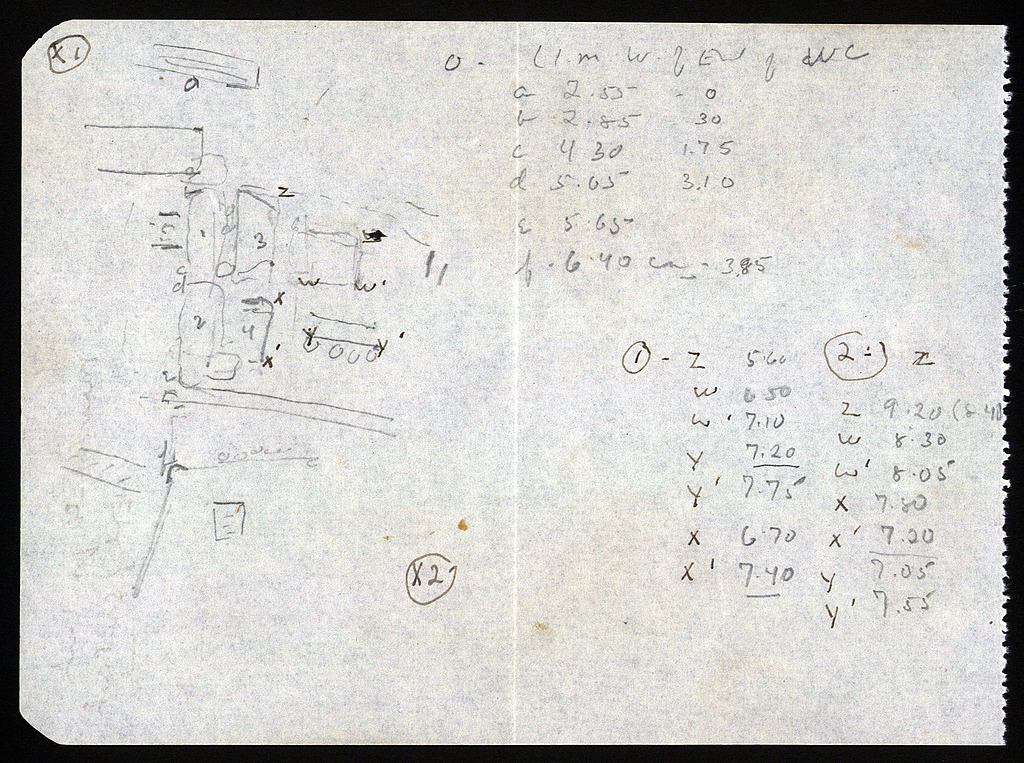 X1
0 - 11 m W. of EW of WC
a 2.55 - 0
b 2.85 30
c 4 30 1.75
d 5.65 3.10
e 5.65
f - 6.40 - 385
a
z
1
3
c
d
w w'
x
2
4
y y'
x'
X2
1 - Z 5.60
w 6.50
w' 7.10
y 7.20
y' 7.75
x 6.70
x' 7.40
2 - Z
Z 9.20
w 8.30
w' 8.05
x 7.80
x' 7.20
y 7.05
y' 7.55